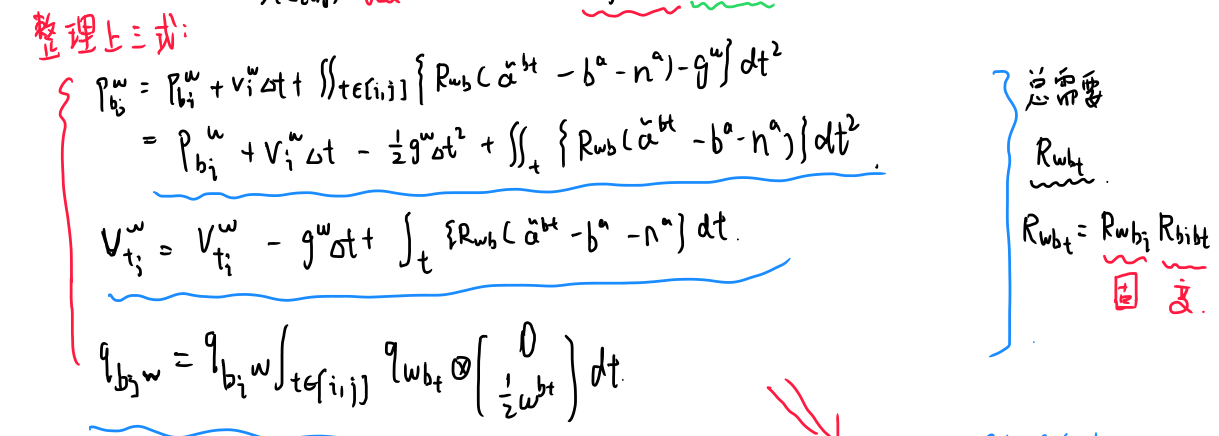 整理上三式:
P_{bj}^w = P_{bi}^w + v_i^w Δt + ∬_{t∈[i,j]} { R_{wb} ( ã^{bt} - b^a - n^a ) - g^w } dt²
= P_{bi}^w + V_i^w Δt - ½ g^w Δt² + ∬_t { R_{wb} ( ã^{bt} - b^a - n^a ) } dt² .
V_{tj}^w = V_{ti}^w - g^w Δt + ∫_t { R_{wb} ( ã^{bt} - b^a - n^a } dt .
q_{bj w} = q_{bi w} ∫_{t∈[i,j]} q_{wbt} ⊗ ( 0 ½ω^{bt} ) dt .
总需要
R_{wbt} .
R_{wbt} = R_{wbi} R_{bibt}
固 变.